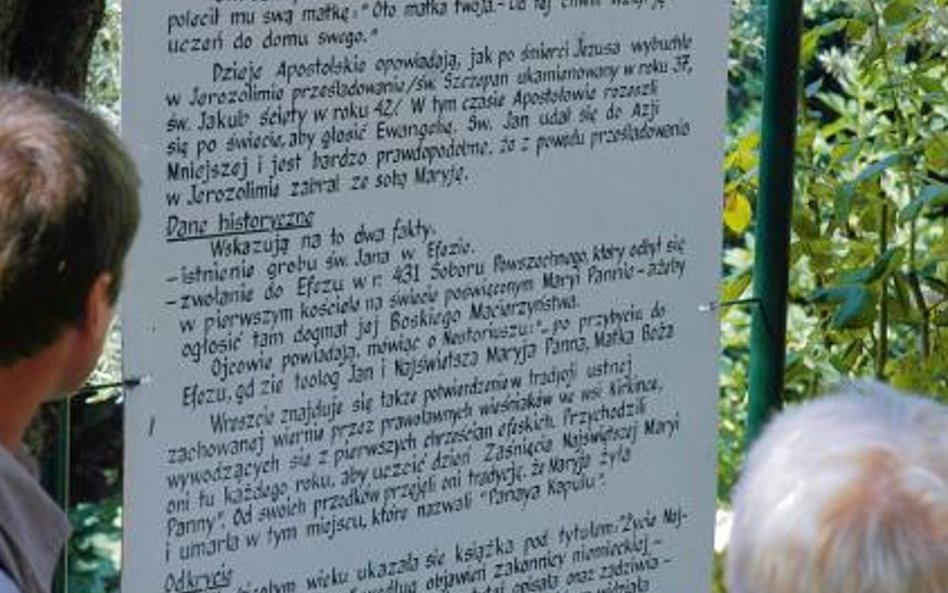 polecił mu swą matkę: "Oto matka twoja.- Od tej chwili wziął ją
uczeń do domu swego."
Dzieje Apostolskie opowiadają, jak po śmierci Jezusa wybuchło
w Jerozolimie prześladowanie/św. Szczepan ukamienowany w roku 37,
św. Jakub ścięty w roku 42/. W tym czasie Apostołowie rozeszli
się po świecie, aby głosić Ewangelię. Św. Jan udał się do Azji
Mniejszej i jest bardzo prawdopodobne, że z powodu prześladowania
w Jerozolimie zabrał ze sobą Maryję.
Dane historyczne
Wskazują na to dwa fakty.
-istnienie grobu św. Jana w Efezie.
-zwołanie do Efezu w r. 431 Soboru Powszechnego, który odbył się
w pierwszym kościele na świecie poświęconym Maryi Pannie - ażeby
ogłosić tam dogmat jej Boskiego Macierzyństwa.
Ojcowie powiadają, mówiąc o Nestoriuszu: "-po przybyciu do
Efezu, gdzie teolog Jan i Najświętsza Maryja Panna, Matka Boża
Wreszcie znajduje się także potwierdzenie w tradycji ustnej
zachowanej wiernie przez prawosławnych wieśniaków we wsi Kirkince,
wywodzących się z pierwszych chrześcian efeskich. Przychodzili
oni tu każdego roku, aby uczcić dzień Zaśnięcia Najświętszej Maryi
Panny". Od swoich przodków przejęli oni tradycję, że Maryja żyła
i umarła w tym miejscu, które nazwali "Panaya Kapulu".
Odkrycie
wieku ukazała się książka pod tytułem: "Życie Naj-
według objawień zakonnicy niemieckiej -
opisała oraz zadziwia -